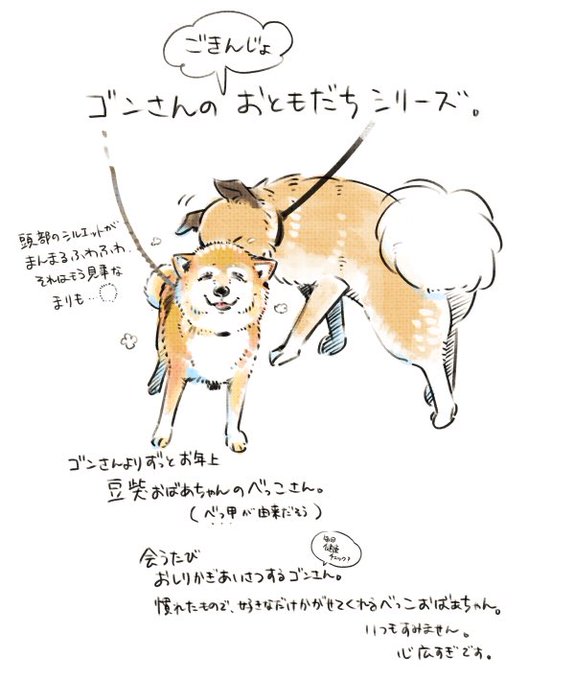 ごきんじょ
ゴンさんの おともだち シリーズ。
頭部のシルエットが
まんまるふわふわ。
それはもう見事な
まりも…
ゴンさんよりずっとお年上
豆柴おばあちゃんのべっこさん。
(べっ甲が由来だそう)
毎回
健康
チェック?
会うたび
おしりかぎあいさつするゴンさん。
慣れたもので、好きなだけかがせてくれるべっこおばあちゃん。
いつもすみません。
心広すぎです。